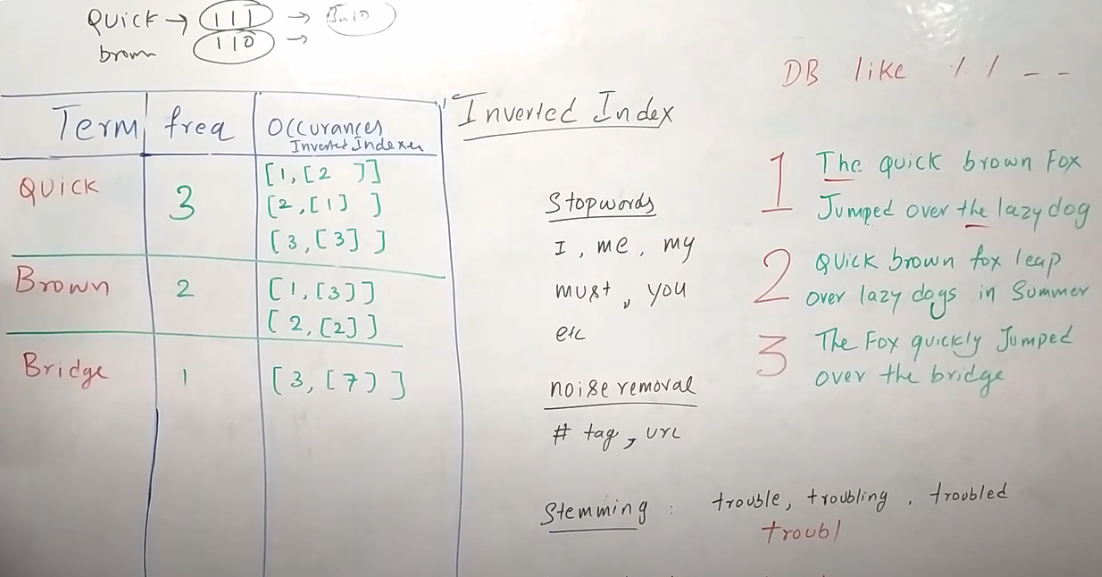 Quick → 111 →
brown 110 →
Term freq Occurances
Inverted Indexes
Quick 3 [1,[2 ]]
[2,[1] ]
[3,[3] ]
Brown 2 [1,[3]]
[2,[2]]
Bridge 1 [3,[7)]
Inverted Index
Stopwords
I, me, my
must, you
etc
noise removal
# tag, url
Stemming : trouble, troubling, troubled
troubl
DB like % / - -
1 The quick brown Fox
Jumped over the lazy dog
2 Quick brown fox leap
over lazy dogs in Summer
3 The Fox quickly Jumped
over the bridge